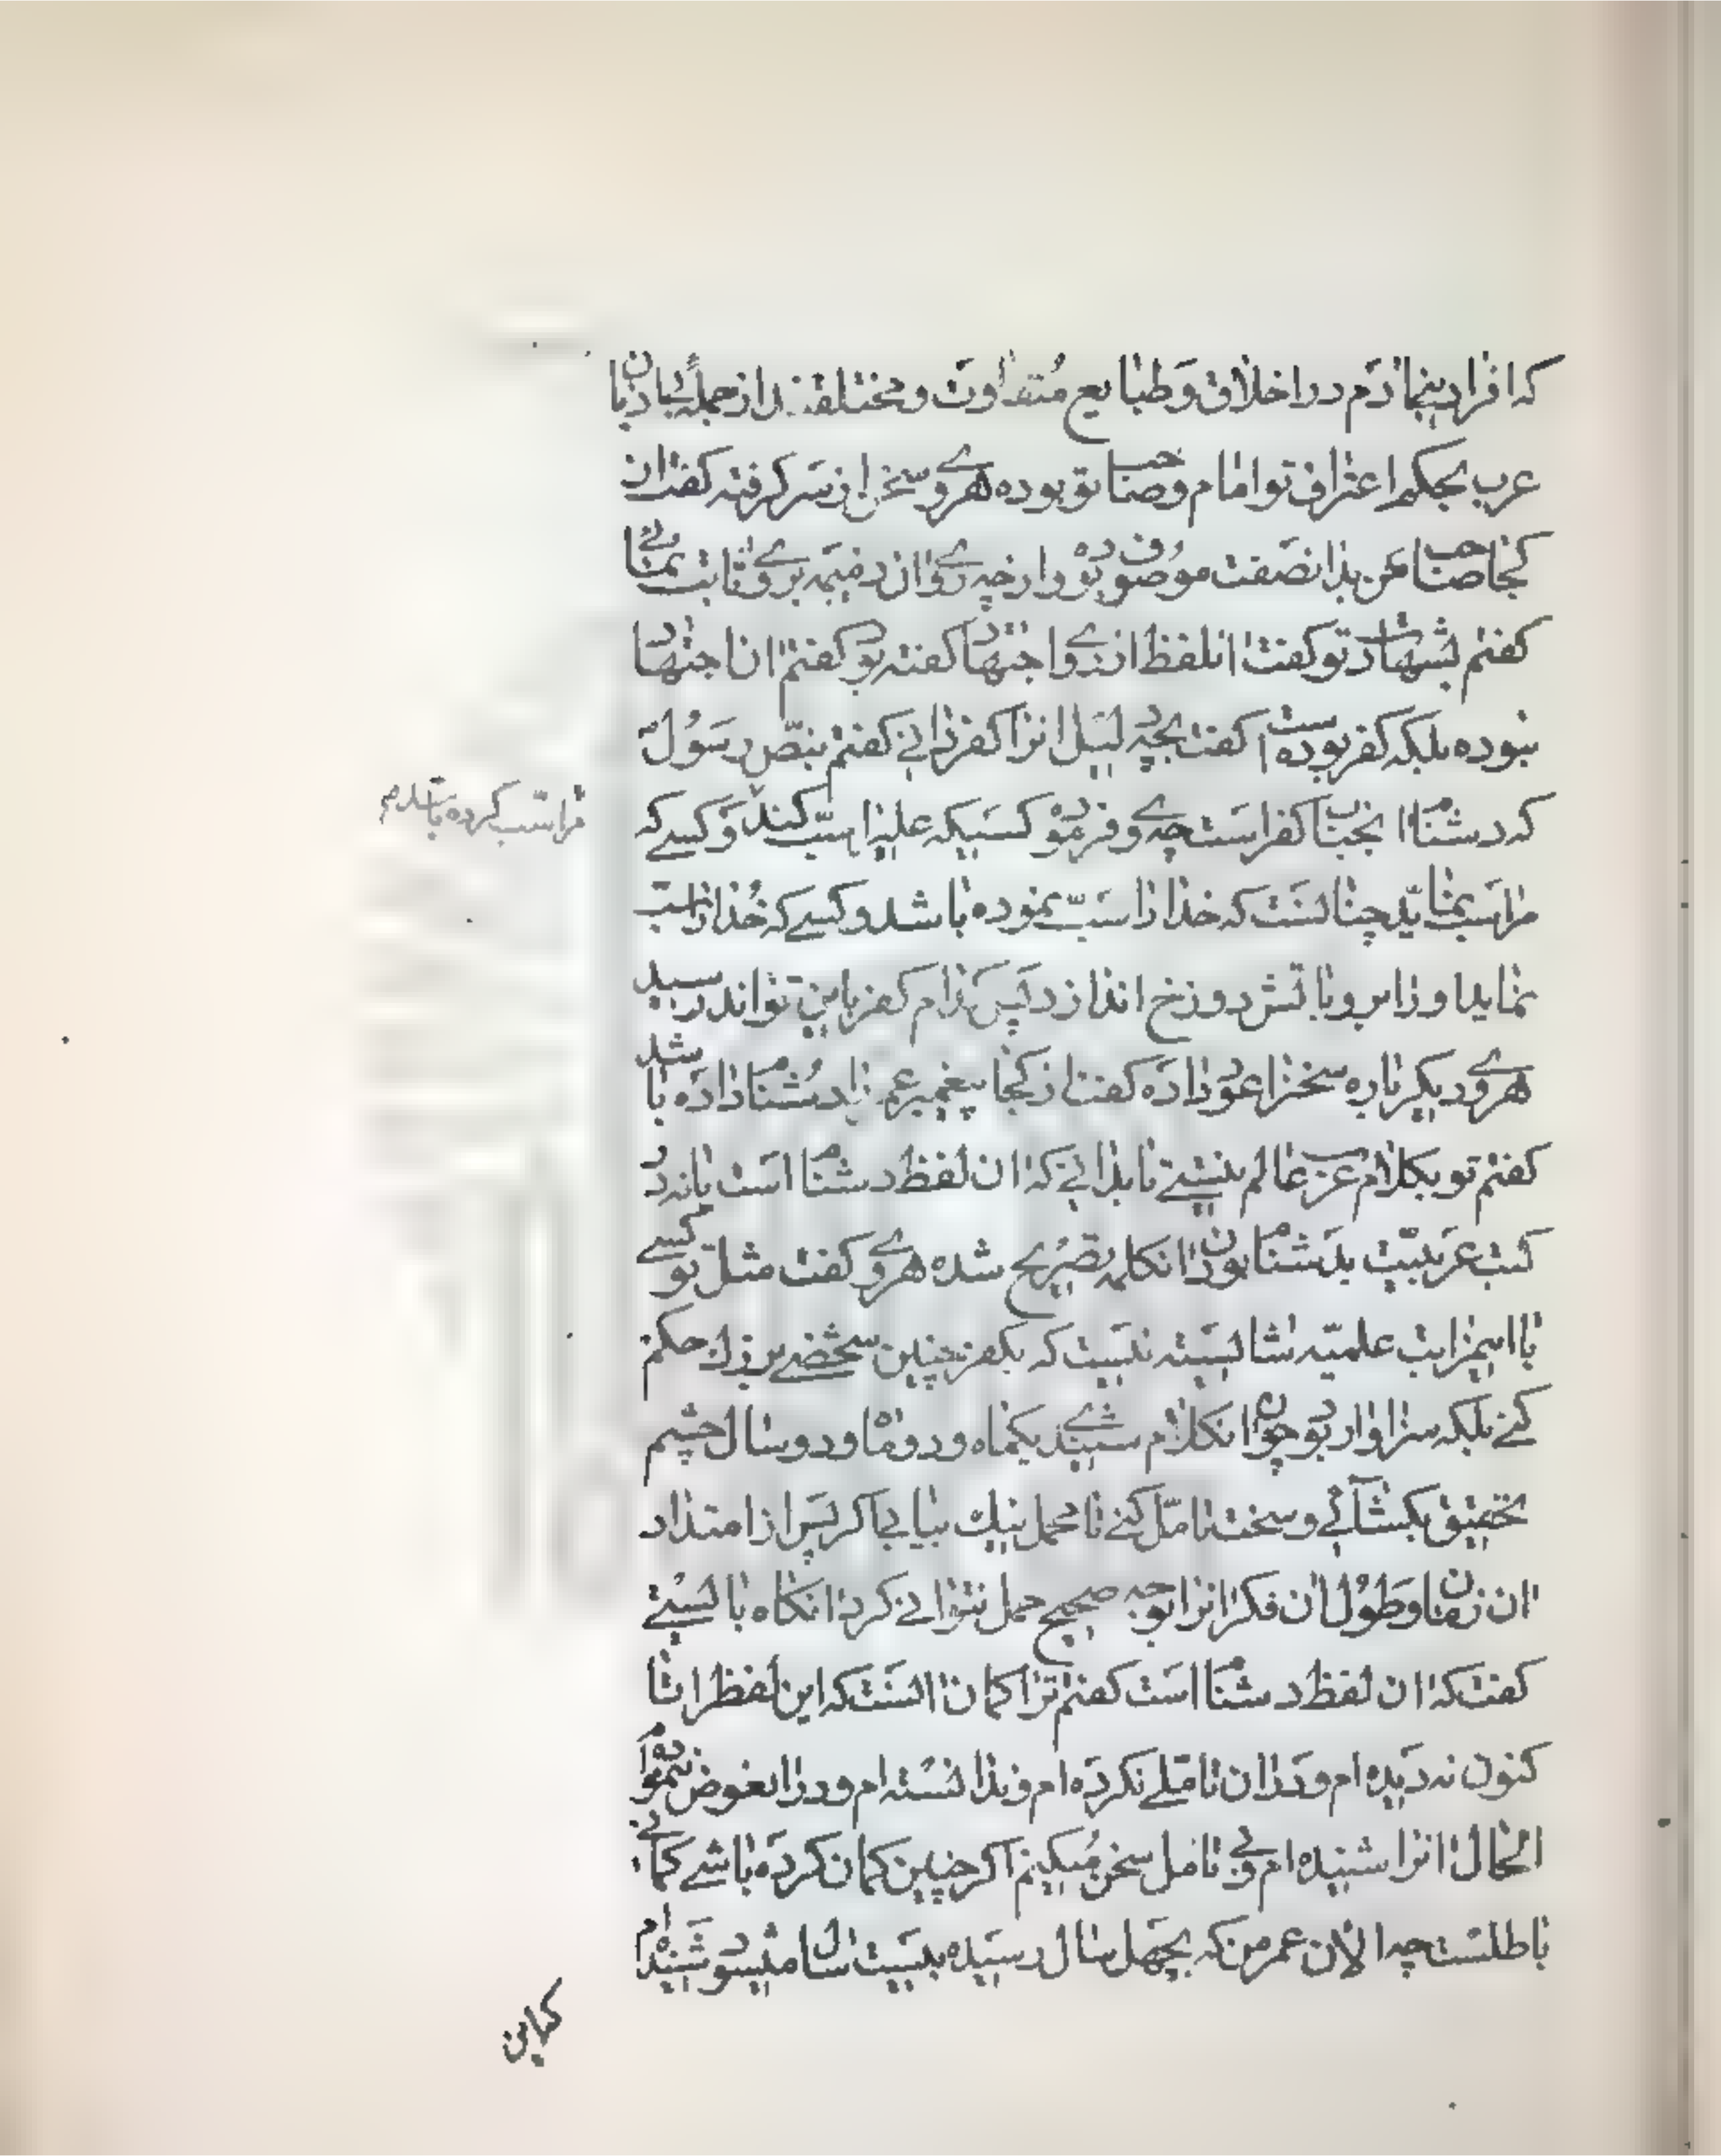 که افراد بنی ادم در اخلاق و طبایع متفاوت و مختلفند از جمله
عرب بحکم اعتراف تو امام و صاحب تو بوده هروی سخن از سر گرفته گفت ان
کجا صاحب من بدانصفت موصوف بوده و از چه روی ان ذمیمه بر وی ثابت نمائی
گفتم بشهادت تو گفت انلفظ از روی اجتهاد گفته بود گفتم ان اجتهاد
نبوده بلکه کفر بوده است گفت بچه دلیل انرا کفر دانی گفتم بنص رسول
که دشنام انجناب کفر است چه وی فرمود کسیکه علیرا سب کند و کسی که
مرا سب کرده باشد م
مرا سب نماید چنانست که خدا را سب نموده باشد و کسی که خدا را سب
نماید او را برو باتش دوزخ اندازد پس کدام کفر باین تواند رسید
هروی دیگر باره سخنرا عود داده گفت از کجا پیغمبر عم را دشنام داده باشد
گفتم تو بکلام عرب عالم نیستی تا بدانی که ان لفظ دشنام است یا نه در
کتب عربیت بدشنام بودن انکلمه تصریح شده هروی گفت مثل تو کسی
با این مراتب علمیه شایسته نیست که بکفر چنین شخصی بزرك حکم
کنی بلکه سزاوار بود چون انکلام شنیدی یکماه و دو ماه و دو سال چشم
تحقیق بکشائی و سخت تامل کنی تا محمل نیك بیابی اگر پس از امتداد
ان زمان و طول ان فکر انرا بوجه صحیح حمل نتوانی کرد انگاه بایستی
گفت که ان لفظ دشنام است گفتم ترا گمان انست که این لفظ را تا
کنون ندیده ام و در ان تاملی نکرده ام و ندانسته ام و در ان غوض ننموده ام
الحال انرا شنیده ام و بی تامل سخن میگویم اگر چنین گمان کرده باشی گمانی
باطلست چه الان عمر من که بچهل سال رسیده بیست سال میشود شنیده ام
که این